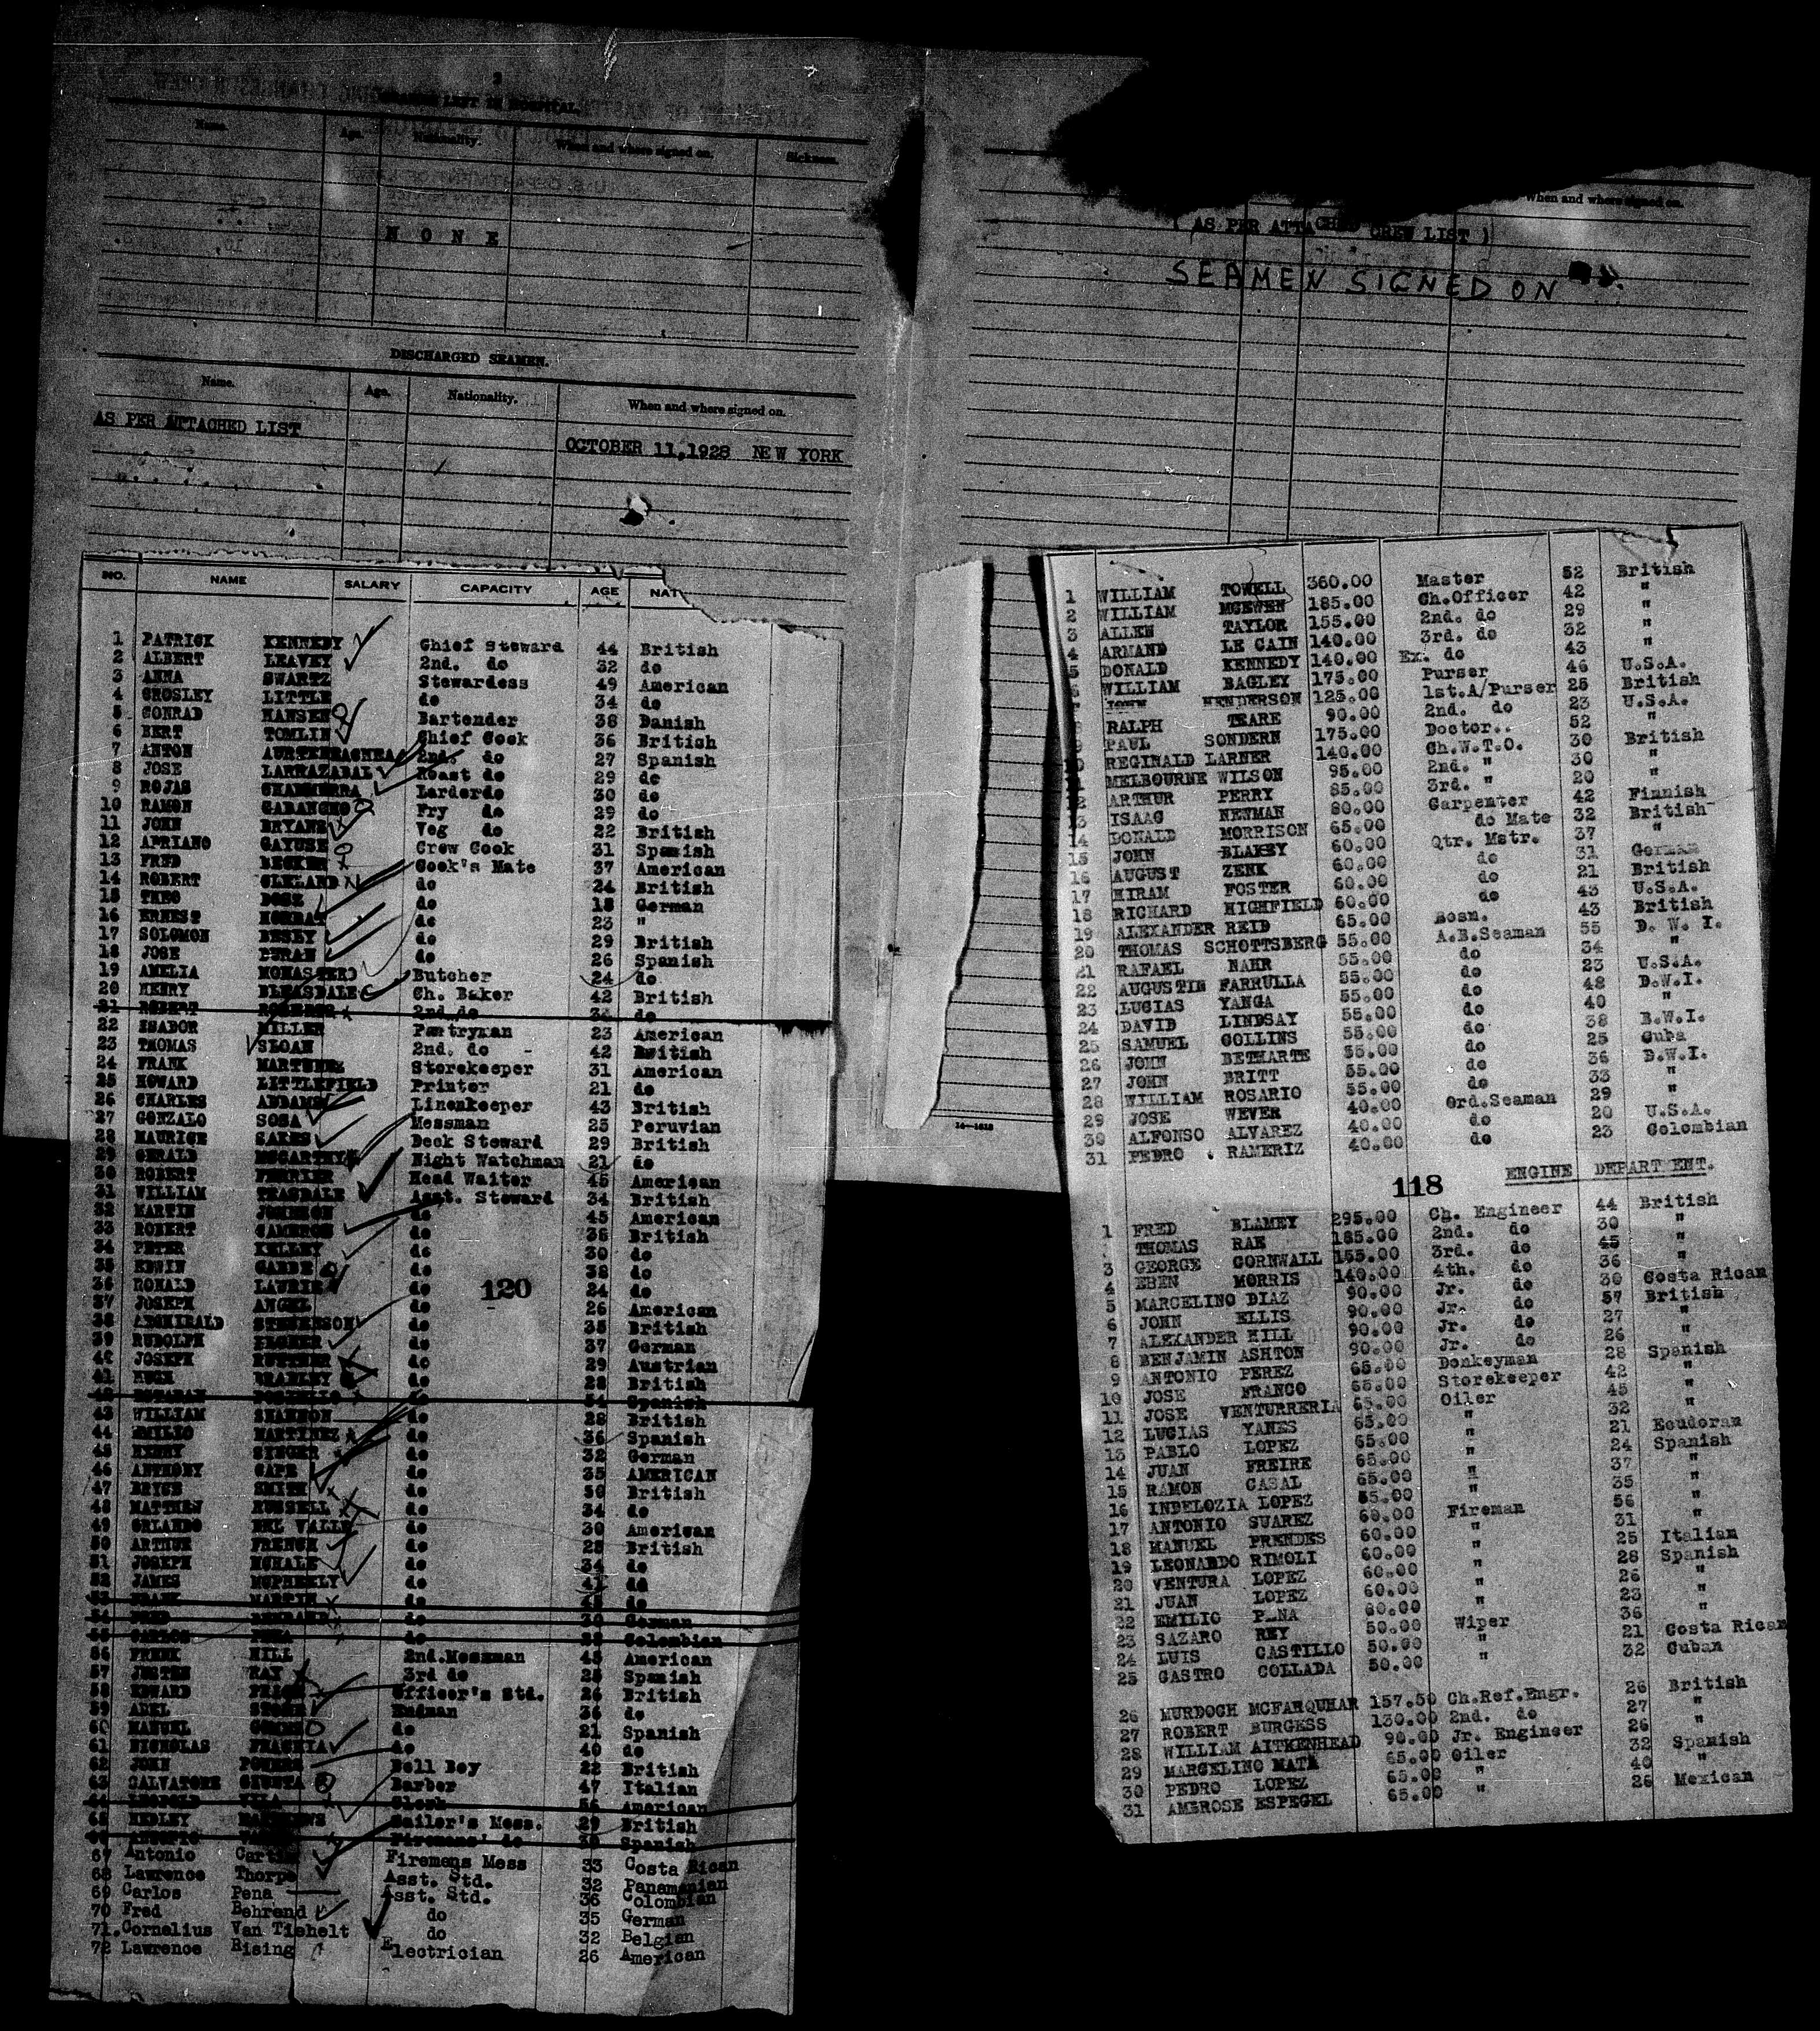 2
SEAMEN LEFT IN HOSPITAL.
Name. Age. Nationality. When and where signed on. Sickness.
NONE
DISCHARGED SEAMEN.
Name. Age. Nationality. When and where signed on.
AS PER ATTACHED LIST
OCTOBER 11,1928 NEW YORK
NO. NAME SALARY CAPACITY AGE NAT
1 PATRICK KENNEDY Chief Steward 44 British
2 ALBERT LEAVEY 2nd. do 32 do
3 ANNA SWARTZ Stewardess 49 American
4 CROSLEY LITTLE do 34 do
5 CONRAD HANSEN Bartender 38 Danish
6 BERT TOMLIN Chief Cook 36 British
7 ANTON 2nd. do 27 Spanish
8 JOSE LARRAZABAL Roast do 29 do
9 ROJAS Larderdo 30 do
10 RAMON CABANCHO Fry do 29 do
11 JOHN BRYANS Veg do 22 British
12 APRIANO CAYUSE Crew Cook 31 Spanish
13 FRED BECKER Cook's Mate 37 American
14 ROBERT CLELAND do 24 British
15 THEO do 18 German
16 ERNEST do 23 "
17 SOLOMON do 29 British
18 JOSE DURAN do 26 Spanish
19 AMELIA MONASTERO Butcher 24 do
20 HENRY BLEASDALE Ch. Baker 42 British
21 ROBERT 2nd do 34 do
22 ISADOR MILLER Pantryman 23 American
23 THOMAS SLOAN 2nd. do - 42 British
24 FRANK MARTINEZ Storekeeper 31 American
25 HOWARD LITTLEFIELD Printer 21 do
26 CHARLES ADDAMS Linenkeeper 43 British
27 GONZALO SOSA Messman 25 Peruvian
28 MAURICE SAKES Deck Steward 29 British
29 GERALD MCCARTHY Night Watchman 21 do
30 ROBERT FERRIER Head Waiter 45 American
31 WILLIAM TEASDALE Asst. Steward 34 British
32 MARTIN JOHNSON do 45 American
33 ROBERT CAMERON do 35 British
34 PETER KELLEY do 30 do
35 EDWIN do 38 do
36 RONALD LAURIE do 24 do
37 JOSEPH ANGEL do 26 American
38 ARCHIBALD STEVENSON do 35 British
39 RUDOLPH do 37 German
40 JOSEPH do 29 Austrian
41 HUGH BRADLEY do 28 British
42 do 34 Spanish
43 WILLIAM SHANNON do 28 British
44 EMILIO MARTINEZ do 36 Spanish
45 HENRY SINGER do 32 German
46 ANTHONY CAPE do 35 AMERICAN
47 BRYCE SMITH do 50 British
48 MATTHEW RUSSELL do 34 do
49 ORLANDO DEL VALLE do 30 American
50 ARTHUR FRENCH do 25 British
51 JOSEPH MCHALE do 34 do
52 JAMES do 41 do
53 FRANK MARTIN do do
54 FRED do 30 German
55 CARLOS PENA do Colombian
56 FRANK HILL 2nd.Messman 45 American
57 RAY 3rd do 25 Spanish
58 EDWARD Officer's Std. 26 British
59 ABEL Endman 36 do
60 MANUEL do 21 Spanish
61 NICHOLAS do 40 do
62 JOHN POWERS Bell Boy 22 British
63 SALVATORE GIUNTA Barber 47 Italian
64 56 American
65 MEDLEY Sailer's Mess. 29 British
66 Firemens' do 30 Spanish
67 Antonio Firemens Mess 33 Costa Rican
68 Lawrence Thorpe Asst. Std. 32 Panamanian
69 Carlos Pena Asst. Std. 36 Colombian
70 Fred Behrend do 35 German
71.Cornelius Van Tichelt do 32 Belgian
72 Lawrence Rising Electrician 26 American
120
When and where signed on.
( AS PER ATTACHED CREW LIST )
SEAMEN SIGNED ON
14—1618
1 WILLIAM TOWELL 360.00 Master 52 British
2 WILLIAM MCEWEN 185.00 Ch.Officer 42 "
3 ALLEN TAYLOR 155.00 2nd. do 29 "
4 ARMAND LE CAIN 140.00 3rd. do 32 "
5 DONALD KENNEDY 140.00 Ex. do 43 "
6 WILLIAM BAGLEY 175.00 Purser 46 U.S.A.
7 JOHN HENDERSON 125.00 1st.A/Purser 25 British
8 RALPH TEARE 90.00 2nd. do 23 U.S.A.
9 PAUL SONDERN 175.00 Doctor.. 52 "
10 REGINALD LARNER 140.00 Ch.W.T.O. 30 British
11 MELBOURNE WILSON 95.00 2nd. " 30 "
12 ARTHUR PERRY 85.00 3rd. " 20 "
13 ISAAC NEWMAN 80.00 Carpenter 42 Finnish
14 DONALD MORRISON 65.00 do Mate 32 British
15 JOHN BLAKEY 60.00 Qtr. Mstr. 37 "
16 AUGUST ZENK 60.00 do 31 German
17 HIRAM FOSTER 60.00 do 21 British
18 RICHARD HIGHFIELD 60.00 do 43 U.S.A.
19 ALEXANDER REID 65.00 Bosn. 43 British
20 THOMAS SCHOTTSBERG 55.00 A.B.Seaman 55 D. W. I.
21 RAFAEL NAHR 55.00 do 34 "
22 AUGUSTIN FARRULLA 55.00 do 23 U.S.A.
23 LUCIAS YANGA 55.00 do 48 D.W.I.
24 DAVID LINDSAY 55.00 do 40 "
25 SAMUEL COLLINS 55.00 do 38 B.W.I.
26 JOHN BETHARTE 55.00 do 25 Cuba
27 JOHN BRITT 55.00 do 36 D.W.I.
28 WILLIAM ROSARIO 55.00 do 33 "
29 JOSE WEVER 40.00 Ord.Seaman 29 "
30 ALFONSO ALVAREZ 40.00 do 20 U.S.A.
31 PEDRO RAMERIZ 40.00 do 23 Colombian
118 ENGINE DEPARTMENT.
1 FRED BLAMEY 295.00 Ch. Engineer 44 British
THOMAS RAE 185.00 2nd. do 30 "
3 GEORGE CORNWALL 155.00 3rd. do 45 "
4 EBEN MORRIS 140.00 4th. do 36 "
5 MARCELINO DIAZ 90.00 Jr. do 30 Costa Rican
6 JOHN ELLIS 90.00 Jr. do 57 British
7 ALEXANDER HILL 90.00 Jr. do 27 "
8 BENJAMIN ASHTON 90.00 Jr. do 26 "
9 ANTONIO PEREZ 65.00 Donkeyman 28 Spanish
10 JOSE FRANCO 65.00 Storekeeper 42 "
11 JOSE VENTURRERIA 65.00 Oiler 45 "
12 LUCIAS YANES 65.00 " 32 "
13 PABLO LOPEZ 65.00 " 21 Ecudoran
14 JUAN FREIRE 65.00 " 24 Spanish
15 RAMON CASAL 65.00 " 37 "
16 INDELOZIA LOPEZ 65.00 " 35 "
17 ANTONIO SUAREZ 60.00 Fireman 56 "
18 MANUEL PRENDES 60.00 " 31 "
19 LEONARDO RIMOLI 60.00 " 25 Italian
20 VENTURA LOPEZ 60.00 " 28 Spanish
21 JUAN LOPEZ 60.00 " 26 "
22 EMILIO PENA 60.00 " 23 "
23 SAZARO REY 50.00 Wiper 36 "
24 LUIS CASTILLO 50.00 " 21 Costa Rican
25 CASTRO COLLADA 50.00 " 32 Cuban
26 MURDOCH MCFARQUHAR 157.50 Ch.Ref.Engr. 26 British
27 ROBERT BURGESS 130.00 2nd. do 27 "
28 WILLIAM AITKENHEAD 90.00 Jr. Engineer 26 "
29 MARCELINO MATA 65.00 Oiler 32 Spanish
30 PEDRO LOPEZ 65.00 " 40 "
31 AMBROSE ESPEGEL 65.00 " 26 Mexican